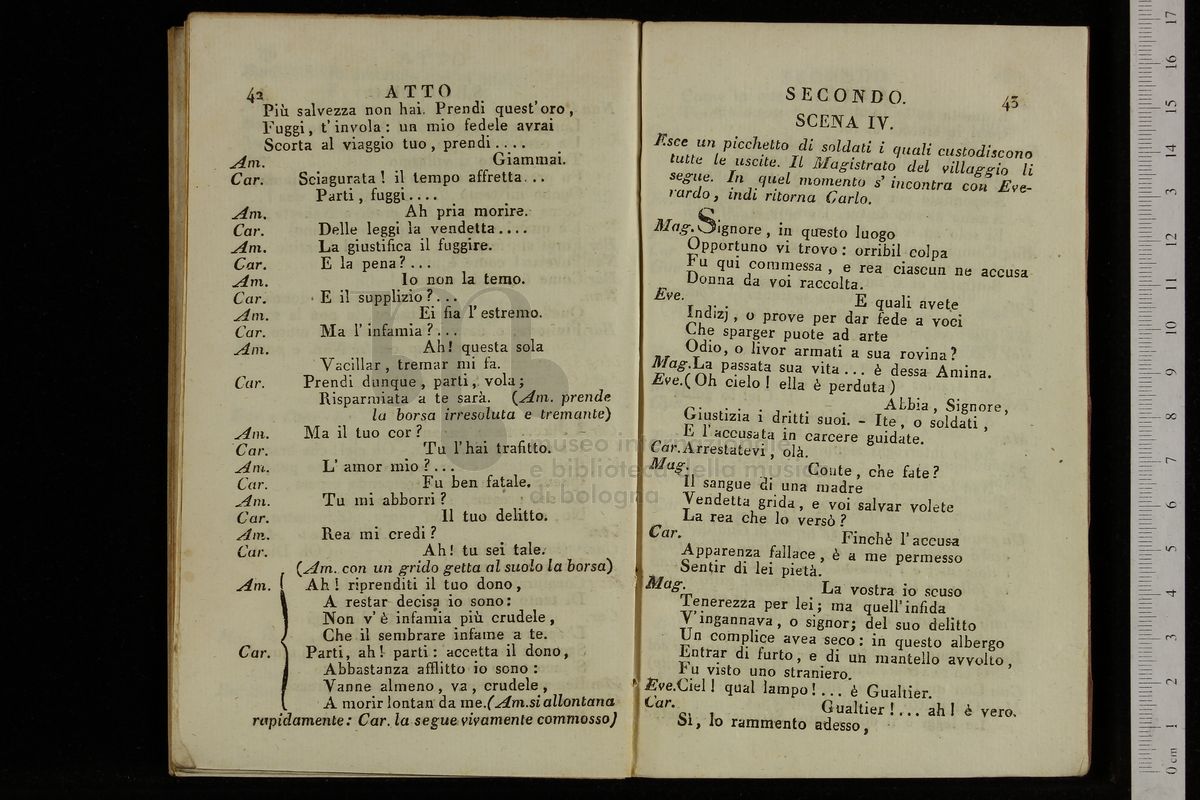 42
ATTO
Più salvezza non hai. Prendi quest'oro,
Fuggi, t'invola: un mio fedele avrai
Scorta al viaggio tuo, prendi....
Am. Giammai.
Car. Sciagurata! il tempo affretta...
Parti, fuggi....
Am. Ah pria morire.
Car. Delle leggi la vendetta....
Am. La giustifica il fuggire.
Car. E la pena?...
Am. Io non la temo.
Car. E il supplizio?...
Am. Ei fia l'estremo.
Car. Ma l'infamia?...
Am. Ah! questa sola
Vacillar, tremar mi fa.
Car. Prendi dunque, parti, vola;
Risparmiata a te sarà. (Am. prende
la borsa irresoluta e tremante)
Am. Ma il tuo cor?
Car. Tu l'hai trafitto.
Am. L'amor mio?...
Car. Fu ben fatale.
Am. Tu mi abborri?
Car. Il tuo delitto.
Am. Rea mi credi?
Car. Ah! tu sei tale.
(Am. con un grido getta al suolo la borsa)
Am. Ah! riprenditi il tuo dono,
A restar decisa io sono:
Non v'è infamia più crudele,
Che il sembrare infame a te.
Car. Parti, ah! parti: accetta il dono,
Abbastanza afflitto io sono:
Vanne almeno, va, crudele,
A morir lontan da me. (Am. si allontana
rapidamente: Car. la segue vivamente commosso)
SECONDO.
43
SCENA IV.
Esce un picchetto di soldati i quali custodiscono
tutte le uscite. Il Magistrato del villaggio li
segue. In quel momento s'incontra con Eve-
rardo, indi ritorna Carlo.
Mag. Signore, in questo luogo
Opportuno vi trovo: orribil colpa
Fu qui commessa, e rea ciascun ne accusa
Donna da voi raccolta.
Eve. E quali avete
Indizj, o prove per dar fede a voci
Che sparger puote ad arte
Odio, o livor armati a sua rovina?
Mag. La passata sua vita... è dessa Amina.
Eve. (Oh cielo! ella è perduta)
Abbia, Signore,
Giustizia i dritti suoi. - Ite, o soldati,
E l'accusata in carcere guidate.
Car. Arrestatevi, olà.
Mag. Conte, che fate?
Il sangue di una madre
Vendetta grida, e voi salvar volete
La rea che lo versò?
Car. Finchè l'accusa
Apparenza fallace, è a me permesso
Sentir di lei pietà.
Mag. La vostra io scuso
Tenerezza per lei; ma quell'infida
V'ingannava, o signor; del suo delitto
Un complice avea seco: in questo albergo
Entrar di furto, e di un mantello avvolto,
Fu visto uno straniero.
Eve. Ciel! qual lampo!... è Gualtier.
Car. Gualtier!... ah! è vero.
Sì, lo rammento adesso,
museo internazionale
e biblioteca della musica
di bologna
0 cm 1 2 3 4 5 6 7 8 9 10 11 12 13 14 15 16 17